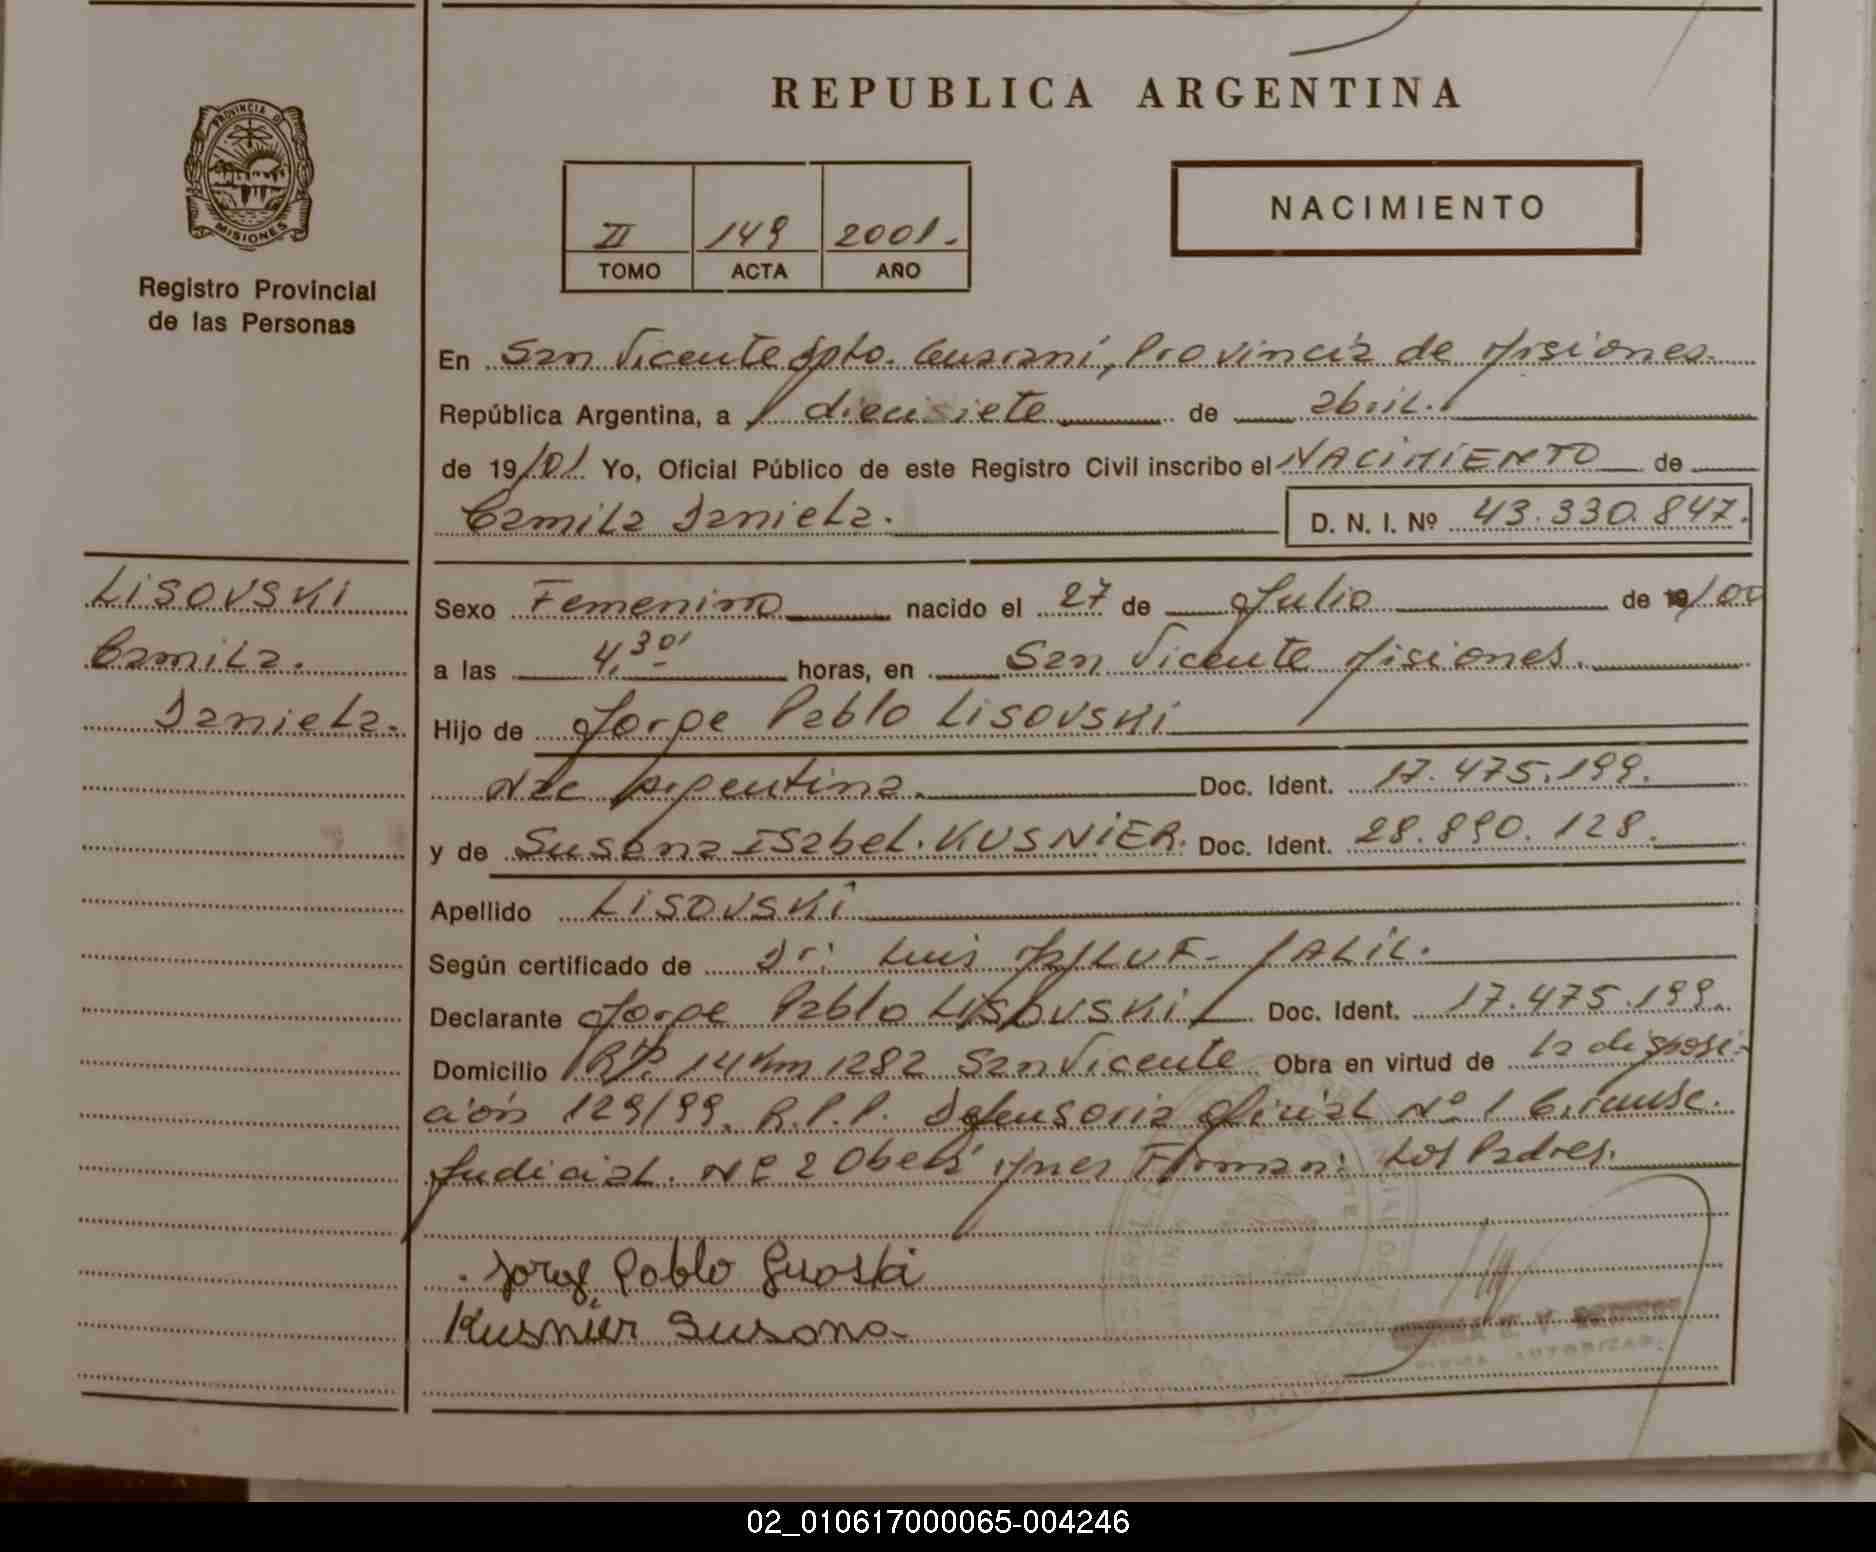 REPUBLICA ARGENTINA
PROVINCIA DE
MISIONES
Registro Provincial
de las Personas
II 149 2001.-
TOMO ACTA AÑO
NACIMIENTO
En San Vicente Dpto. Guaraní, Provincia de Misiones.
República Argentina, a diecisiete de abril.
de 19/01 Yo, Oficial Público de este Registro Civil inscribo el NACIMIENTO de
Camila Daniela. D. N. I. Nº 43.330.847.
LISOVSKI
Camila.
Daniela.
Sexo Femenino nacido el 27 de Julio de 19/00
a las 4,30' horas, en San Vicente Misiones.
Hijo de Jorge Pablo LISOVSKI
Nac Argentina. Doc. Ident. 17.475.199.
y de Susana ISabel. KUSNIER. Doc. Ident. 28.890.128.
Apellido LISOVSKI
Según certificado de Dr: Luis JALIL.
Declarante Jorge Pablo LISOVSKI Doc. Ident. 17.475.199.
Domicilio 14 Km 1282 San Vicente Obra en virtud de la disposi-
ción 129/99. R.P.P. Defensoria Oficial Nº 1 Circunsc.
Judicial. Nº 2 Oberá Mnes Firman: Los Padres.
Jorge Pablo
Kusnier Susana
02_010617000065-004246